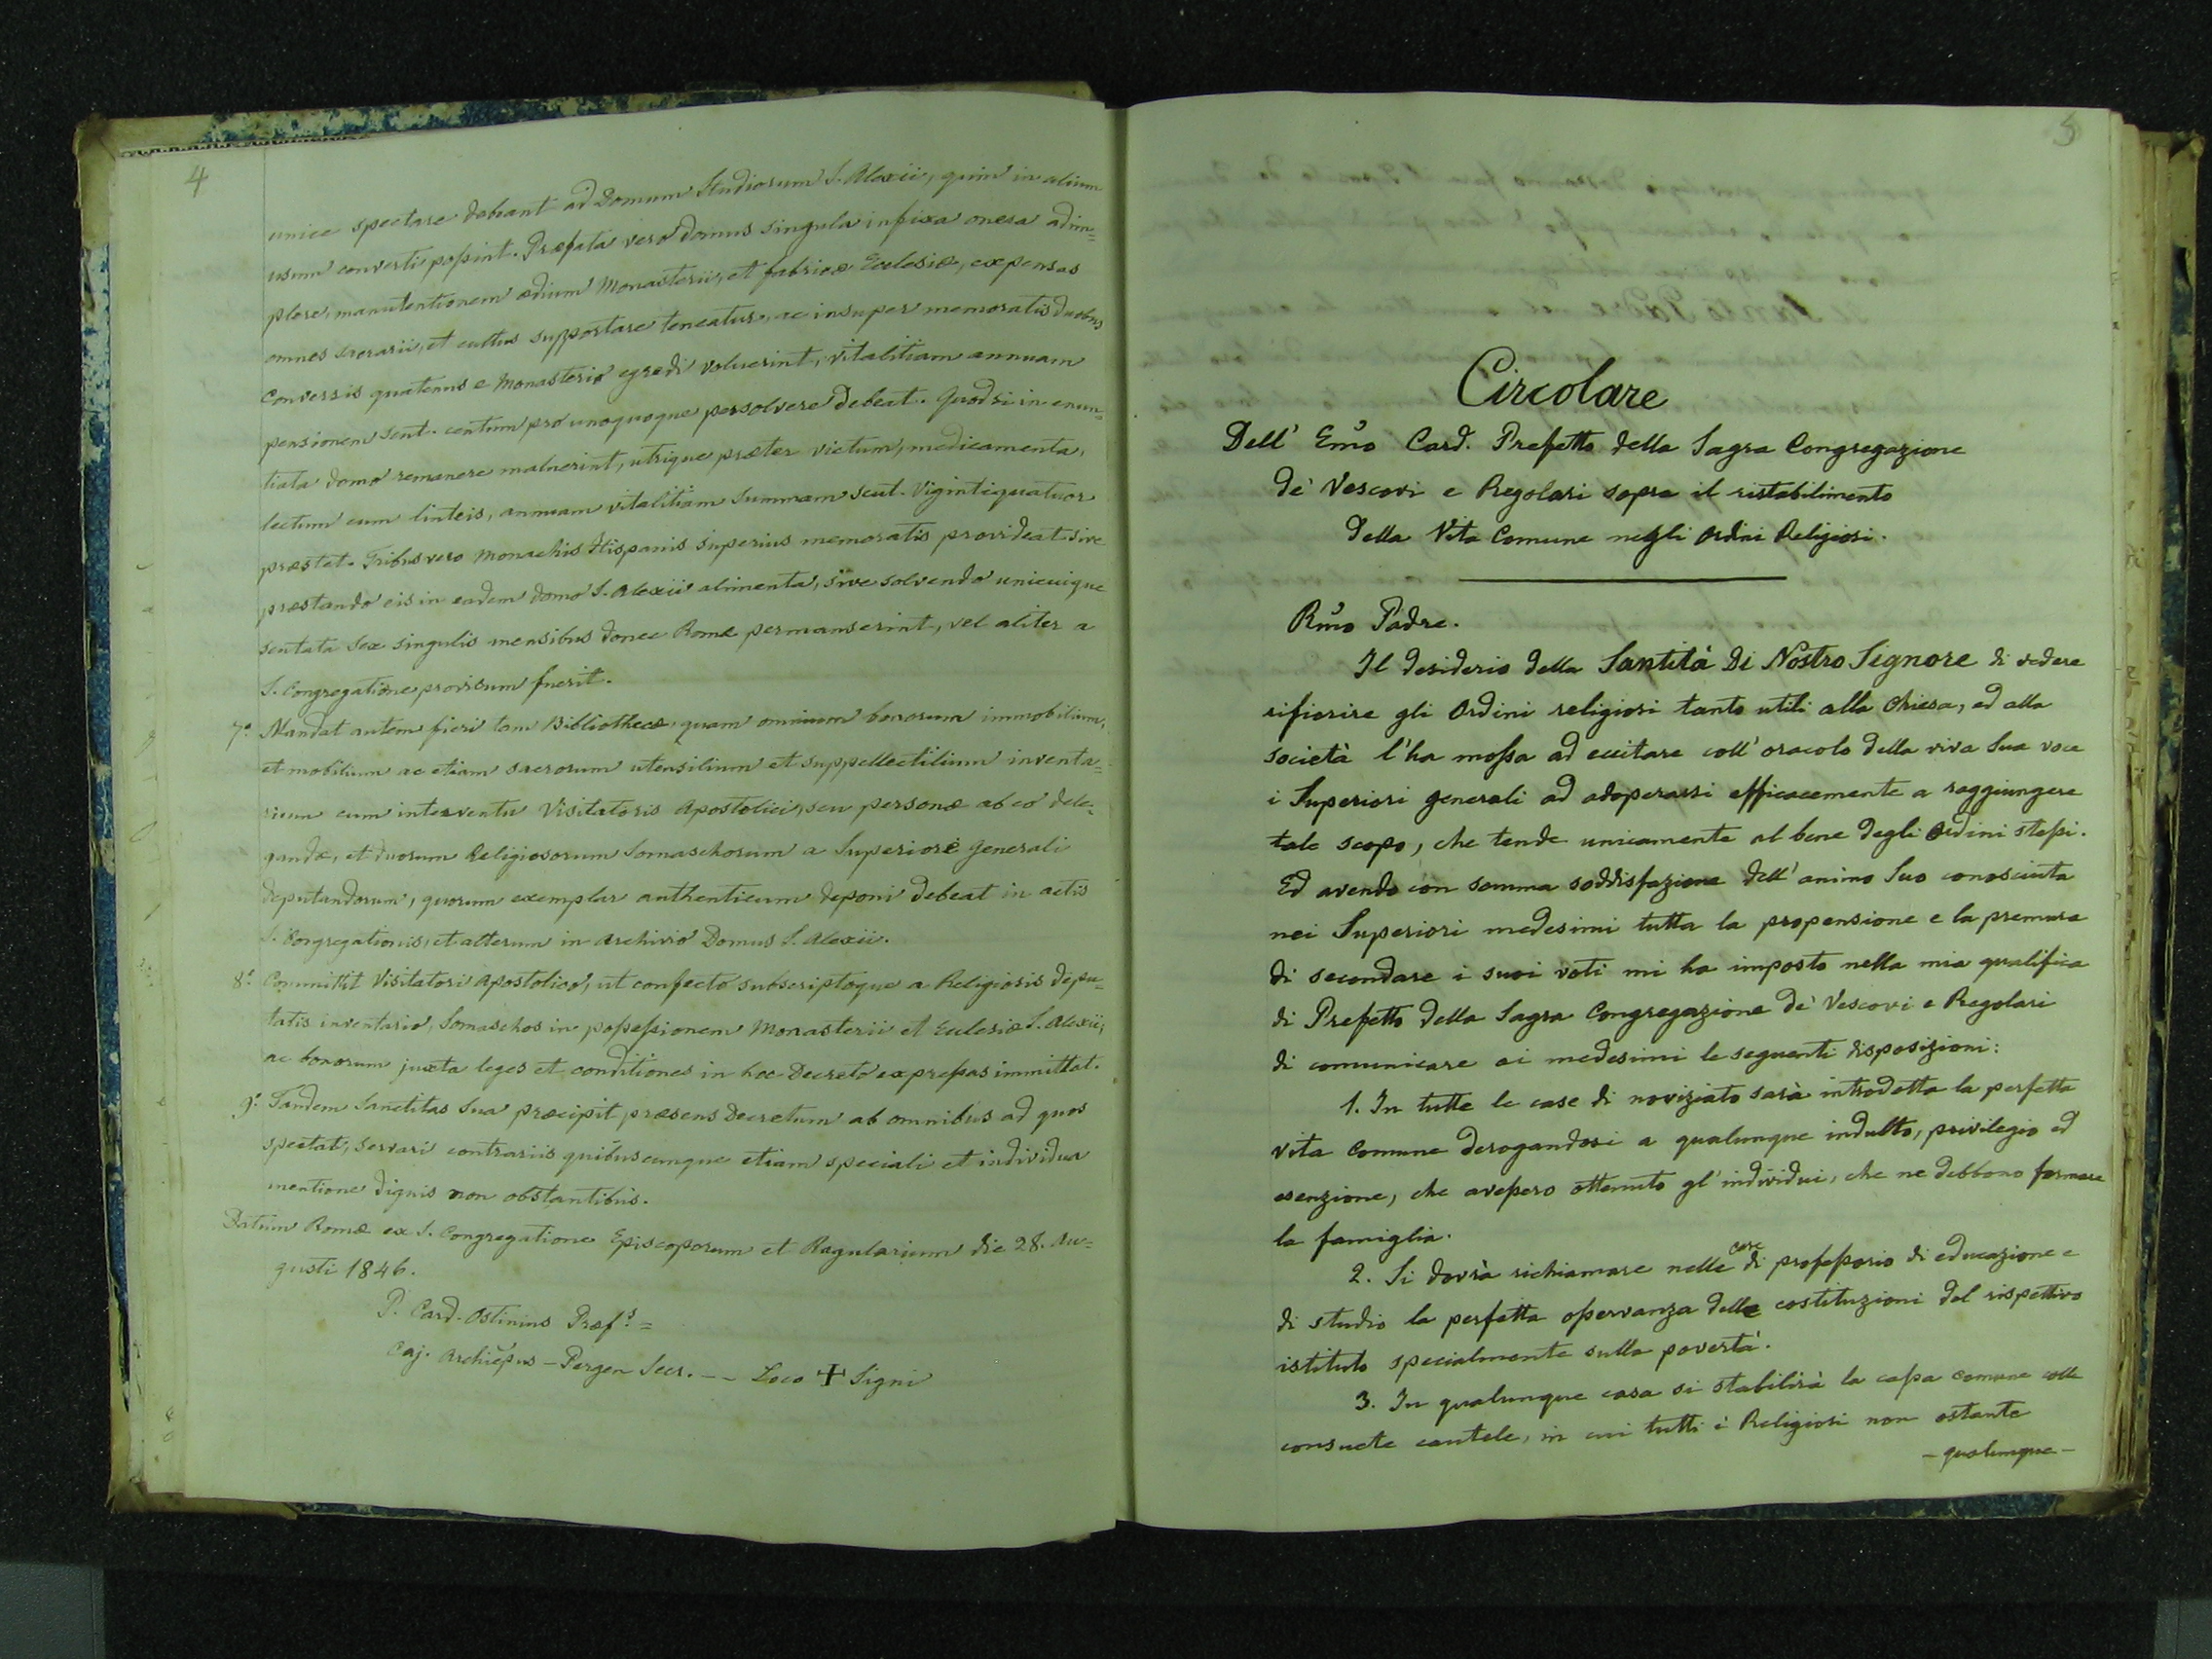 4
unice spectare debeant ad Domum Studiorum S. Alexii, quin in alium
usum converti possint. Præfata vero domus singula infixa onera adim=
plere, manutentionem ædium Monasterii, et fabricæ Ecclesiæ, expensas
omnes sacrarii, et cultus supportare teneatur, ac insuper memoratis duobus
Conversis quatenus e Monasterio egredi voluerint, vitalitiam annuam
pensionem scut. centum pro unoquoque persolvere debeat. Quodsi in enun=
tiata domo remanere maluerint, utrique præter victum, medicamenta,
lectum cum linteis, annuam vitalitiam summam scut. vigintiquatuor
præstet. Tribus vero Monachis Hispanis superius memoratis provideat sive
præstando eis in eadem domo S. Alexii alimenta, sive solvendo unicuique
scutata sex singulis mensibus donec Romæ permanserint, vel aliter a
S. Congregatione provisum fuerit.
7.° Mandat autem fieri tam Bibliothecæ, quam omnium bonorum immobilium,
et mobilium ac etiam sacrorum utensilium et suppellectilium inventa=
rium cum interventu Visitatoris Apostolici, seu personæ ab eo dele=
gandæ, et duorum Religiosorum Somaschorum a Superiore Generali
deputandorum, quorum exemplar authenticum deponi debeat in actis
S. Congregationis, et alterum in Archivio Domus S. Alexii.
8.° Committit Visitatori Apostolico, ut confecto subscriptoque a Religiosis depu=
tatis inventario, Somaschos in possessionem Monasterii et Ecclesiæ S. Alexii,
ac bonorum juxta leges et conditiones in hoc Decreto expressas immittat.
9.° Tandem Sanctitas Sua præcipit, præsens Decretum ab omnibus ad quos
spectat, servari contrariis quibuscumque etiam speciali et individua
mentione dignis non obstantibus.
Datum Romæ ex S. Congregatione Episcoporum et Regularium die 28. Au=
gusti 1846.
P. Card. Ostinius Præf.s =
Caj. Archiepus - Pergen Secr. -- Loco ✝ Signi
5
Circolare
Dell' Emo Card. Prefetto della Sagra Congregazione
de' Vescovi e Regolari sopra il ristabilimento
della Vita Comune negli Ordini Religiosi.
Rmo Padre.
Il desiderio della Santità Di Nostro Signore di vedere
rifiorire gli Ordini religiosi tanto utili alla Chiesa, ed alla
società l'ha mossa ad eccitare coll' oracolo della viva Sua voce
i Superiori generali ad adoperarsi efficacemente a raggiungere
tale scopo, che tende unicamente al bene degli Ordini stessi.
Ed avendo con somma soddisfazione dell' animo Suo conosciuta
nei Superiori medesimi tutta la propensione e la premura
di secondare i suoi voti mi ha imposto nella mia qualifica
di Prefetto della Sagra Congregazione de' Vescovi e Regolari
di comunicare ai medesimi le seguenti disposizioni:
1. In tutte le case di noviziato sarà introdotta la perfetta
vita comune derogandosi a qualunque indulto, privilegio ed
esenzione, che avessero ottenuto gl' individui, che ne debbono formare
la famiglia.
2. Si dovrà richiamare nelle case di professorio di educazione e
di studio la perfetta osservanza delle costituzioni del rispettivo
istituto specialmente sulla povertà.
3. In qualunque casa si stabilirà la cassa comune colle
consuete cautele, in cui tutti i Religiosi non ostante
- qualunque -